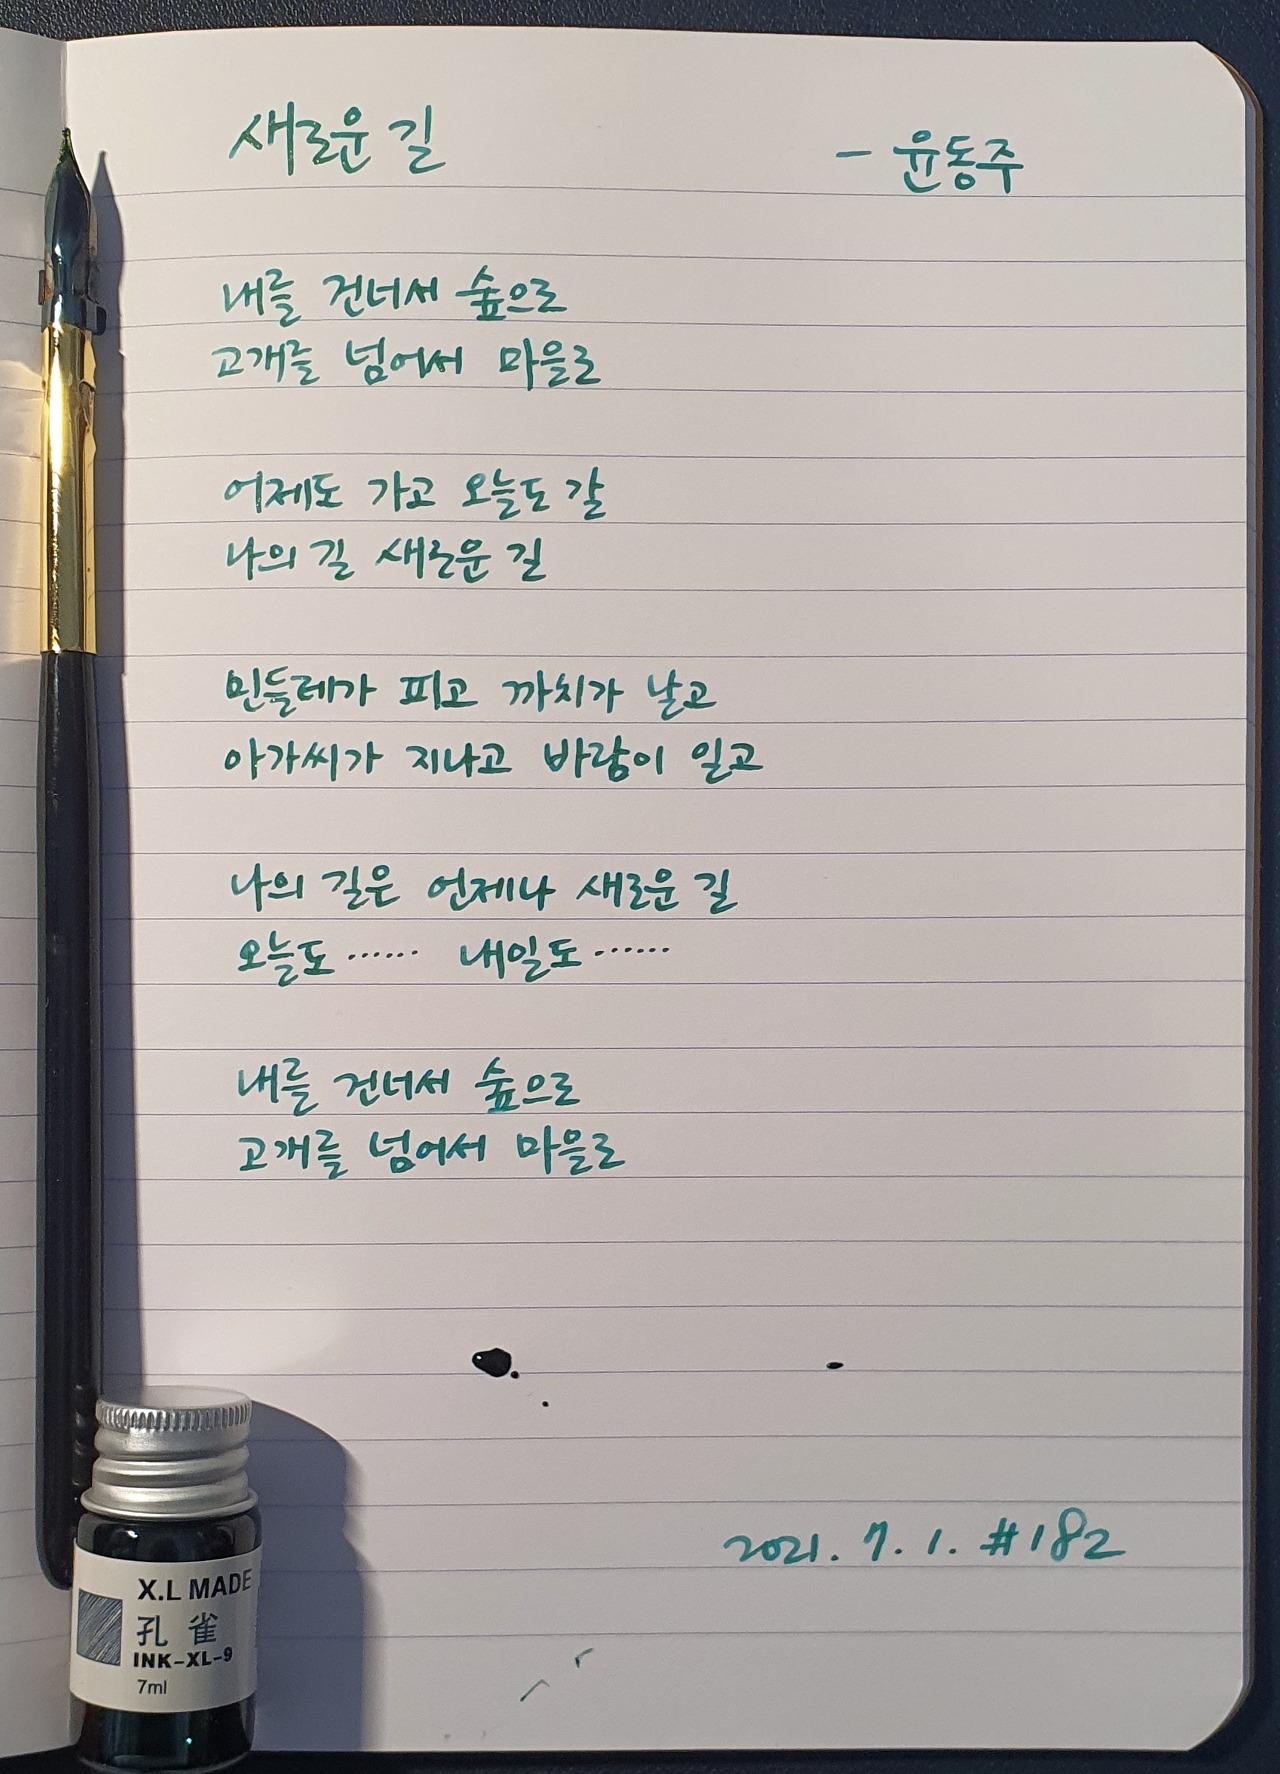 새로운 길
- 윤동주
내를 건너서 숲으로
고개를 넘어서 마을로
어제도 가고 오늘도 갈
나의 길 새로운 길
민들레가 피고 까치가 날고
아가씨가 지나고 바람이 일고
나의 길은 언제나 새로운 길
오늘도 …… 내일도 ……
내를 건너서 숲으로
고개를 넘어서 마을로
2021. 7. 1. #182
X.L MADE
孔 雀
INK-XL-9
7ml